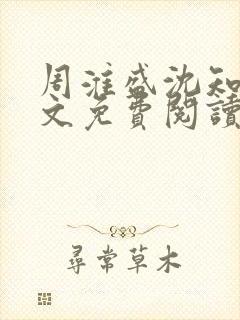 周淮盛沈知
文免費閱讀
尋常草木